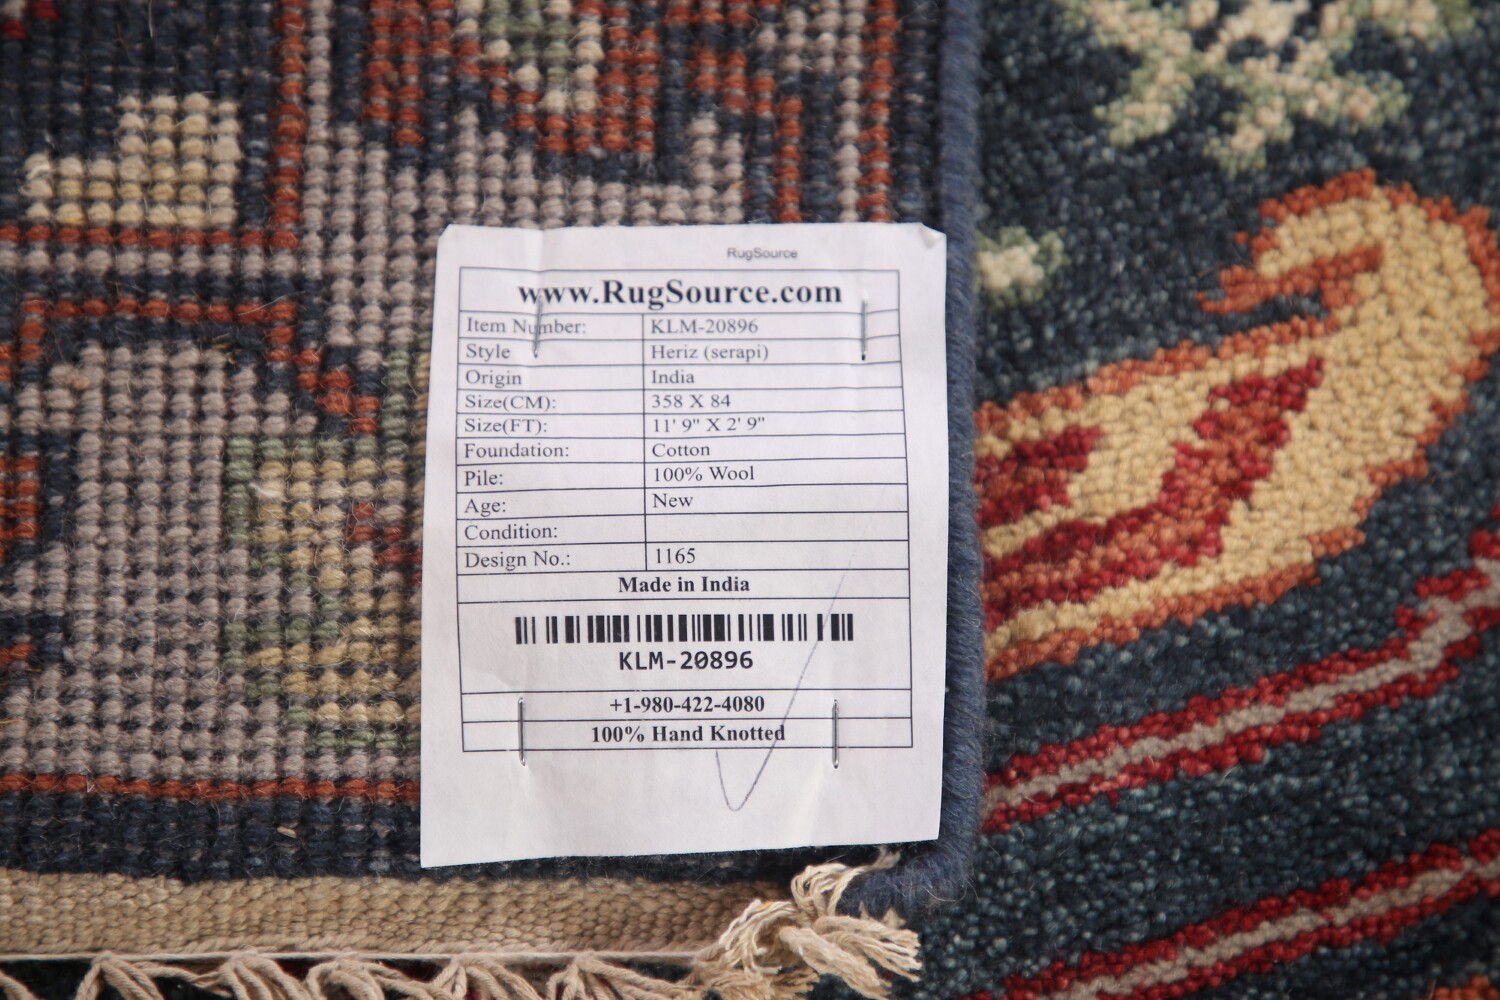 RugSource
www.RugSource.com
Item Number: KLM-20896
Style Heriz (serapi)
Origin India
Size(CM): 358 X 84
Size(FT): 11' 9" X 2' 9"
Foundation: Cotton
Pile: 100% Wool
Age: New
Condition:
Design No.: 1165
Made in India
KLM-20896
+1-980-422-4080
100% Hand Knotted